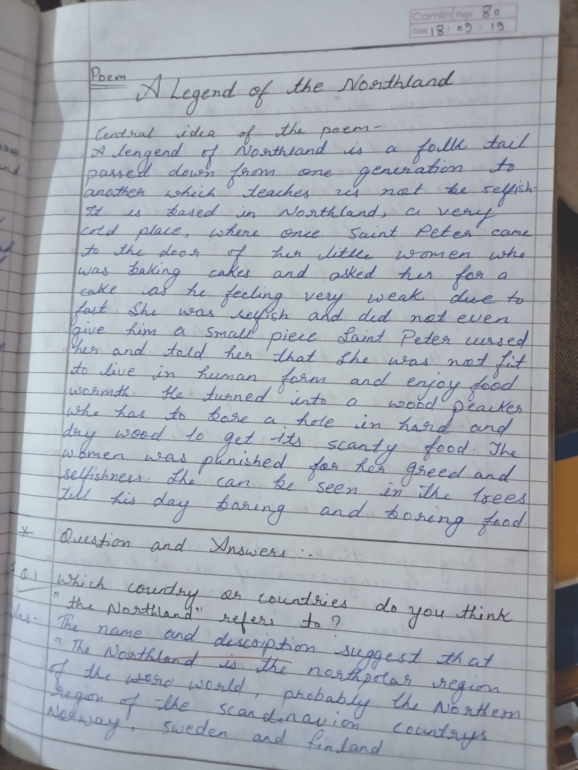 Camlin Page 80
Date 18 : 09 : 19
Poem
A Legend of the Northland
Central idea of the poem-
A lengend of Northland is a follk tail
passed down from one generation to
another which teaches us not be selfish.
It is based in Northland, a very
cold place, where once Saint Peter came
to the door of her little women who
was baking cakes and asked her for a
cake as he feeling very weak due to
fast She was selfish and did not even
give him a small piece Saint Peter cursed
her and told her that She was not fit
to live in human form and enjoy food
wormth. He turned into a wood peacker
who has to bore a hole in hard and
dry wood to get its scanty food. The
women was punished for her greed and
selfishness. She can be seen in The trees
till his day baring and boring food
* Question and Answers :.
Q.1 which country or countries do you think
"the Northland" refers to?
Ans- The name and descoiption suggest that
"The Northland is the northpolar region
of the world, probably the Northern
region of the scandinavion countrys
Norway, sweden and finland